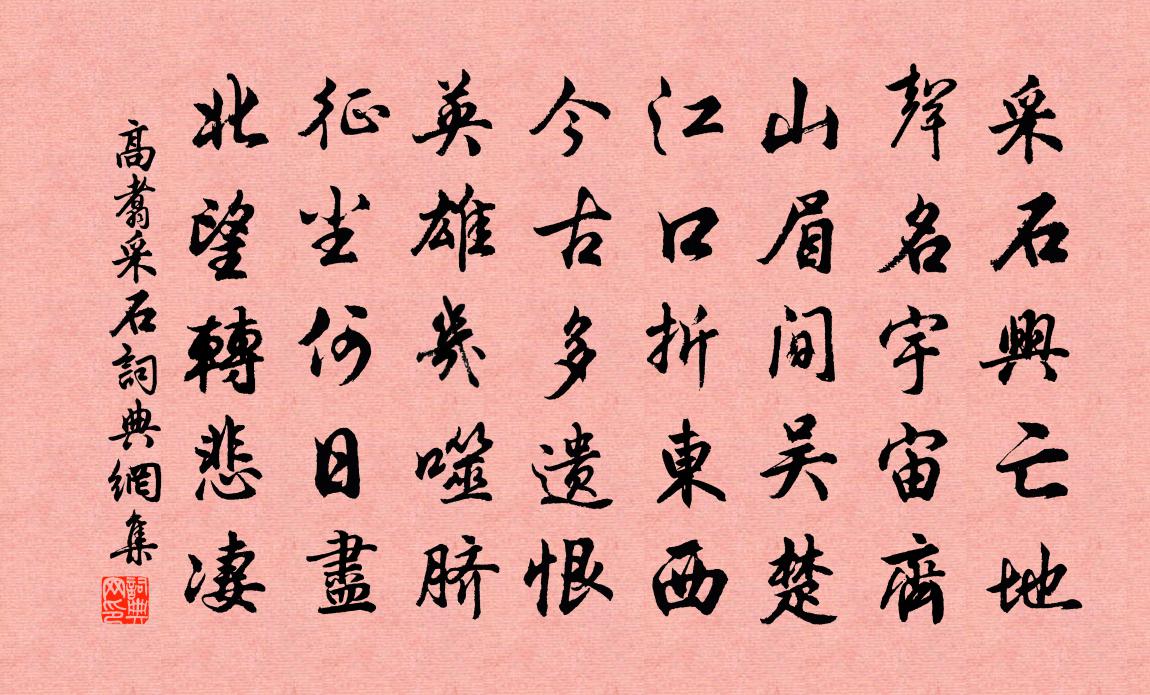 采石興亡地
聲名宇宙齊
山眉間吴楚
江口折東西
今古多遗恨
英雄幾噬脐
征尘何日盡
北望轉悲凄
高翥采石詞典網集
詞典网印